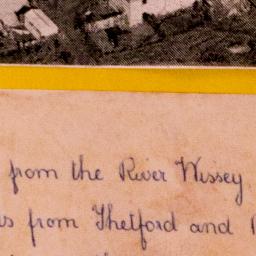 from the River Wissey
from Thetford and